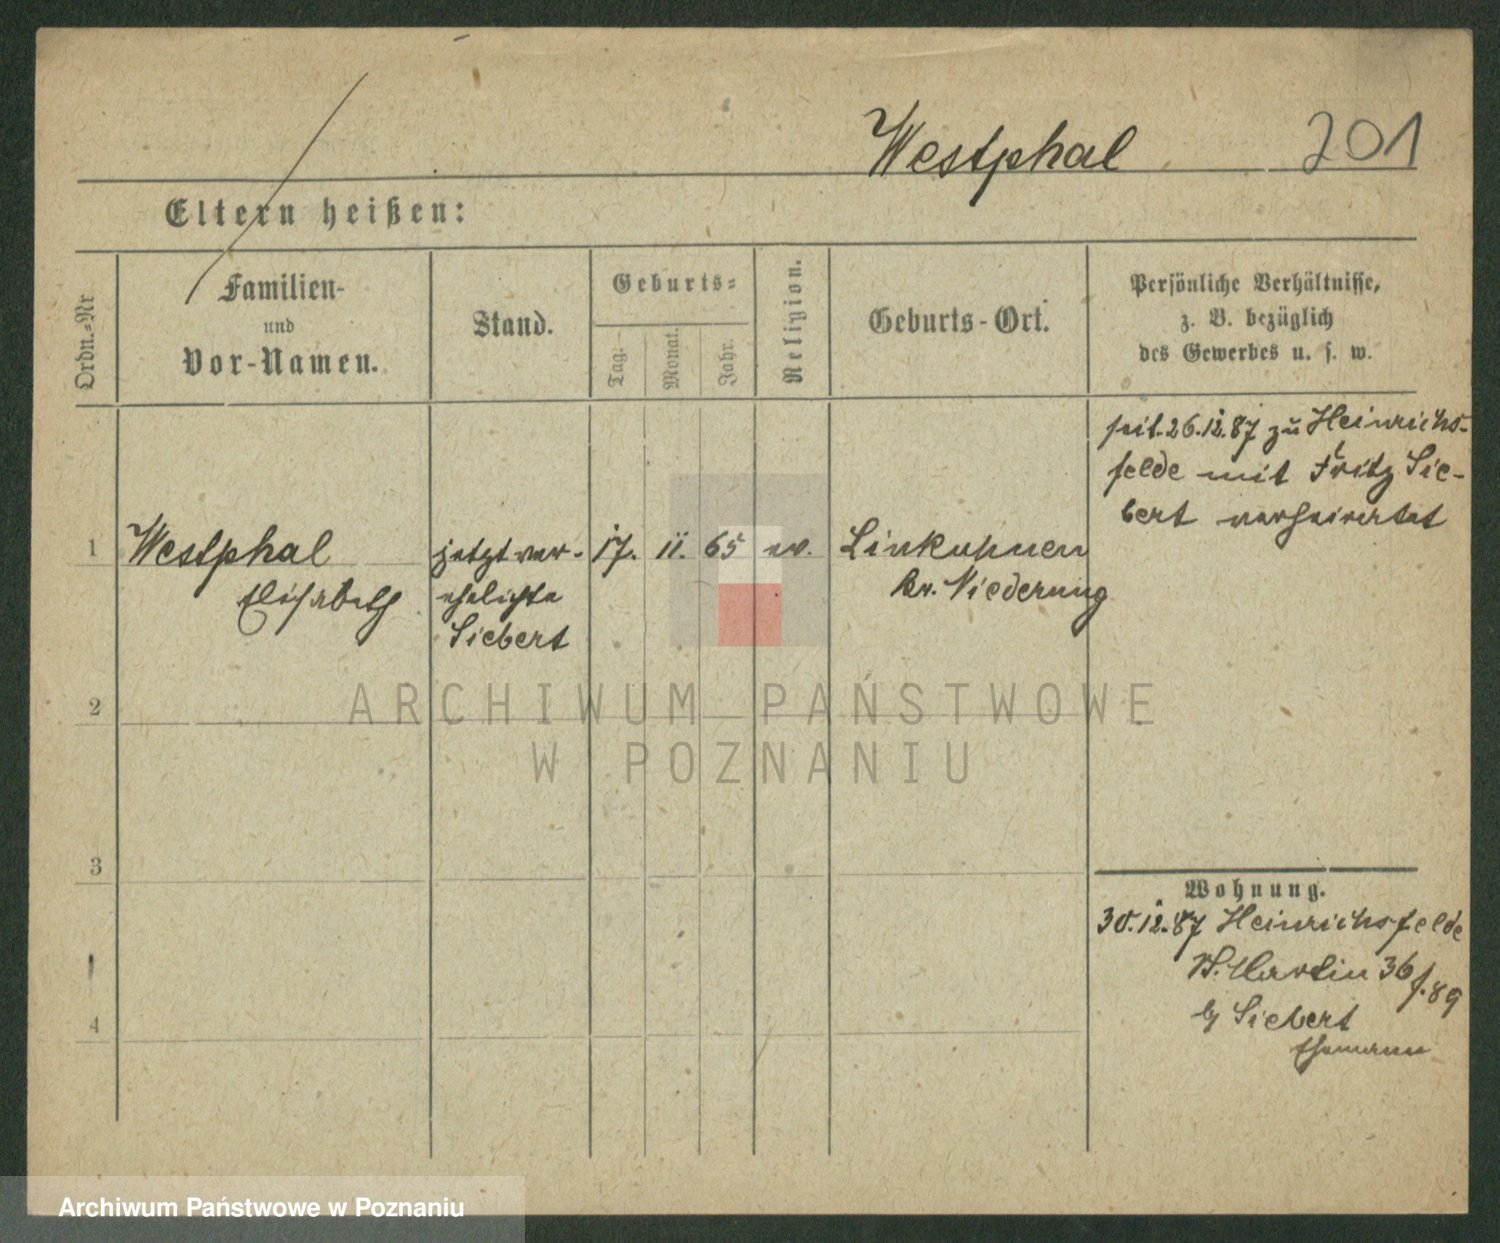 Westphal 201
Eltern heißen:
Ordn.=Nr
Familien-
und
Vor-Namen.
Stand.
Geburts=
Tag.
Monat.
Jahr.
Religion.
Geburts-Ort.
Persönliche Verhältnisse,
z. B. bezüglich
des Gewerbes u. s. w.
seit 26.12.87 zu Heinrichs-
felde mit Fritz Sie-
bert verheiratet
1 Westphal jetzt ver- 17. 11. 65 ev. Linkuhnen
Elisabeth ehelichte Kr. Niederung
Siebert
2
3
4
Wohnung.
30.12.87 Heinrichsfelde
St. Martin 36 f. 89
b/ Siebert
Ehemann
ARCHIWUM PAŃSTWOWE
W POZNANIU
Archiwum Państwowe w Poznaniu